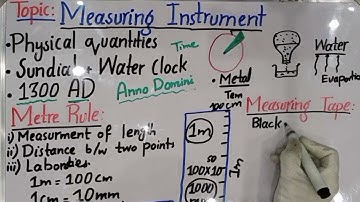 Topic: Measuring Instrument
• Physical quantities
Time
• Sundial + Water Clock
• 1300 AD
Anno Domini
Metre Rule:
i) Measurment of length
ii) Distance b/w two points
iii) Labortries
1m = 100cm
1cm = 10mm
• Metal
Tem
100cm
1m
50
100x10
1000
1m
Water
Evaportio
Measuring Tape:
Black